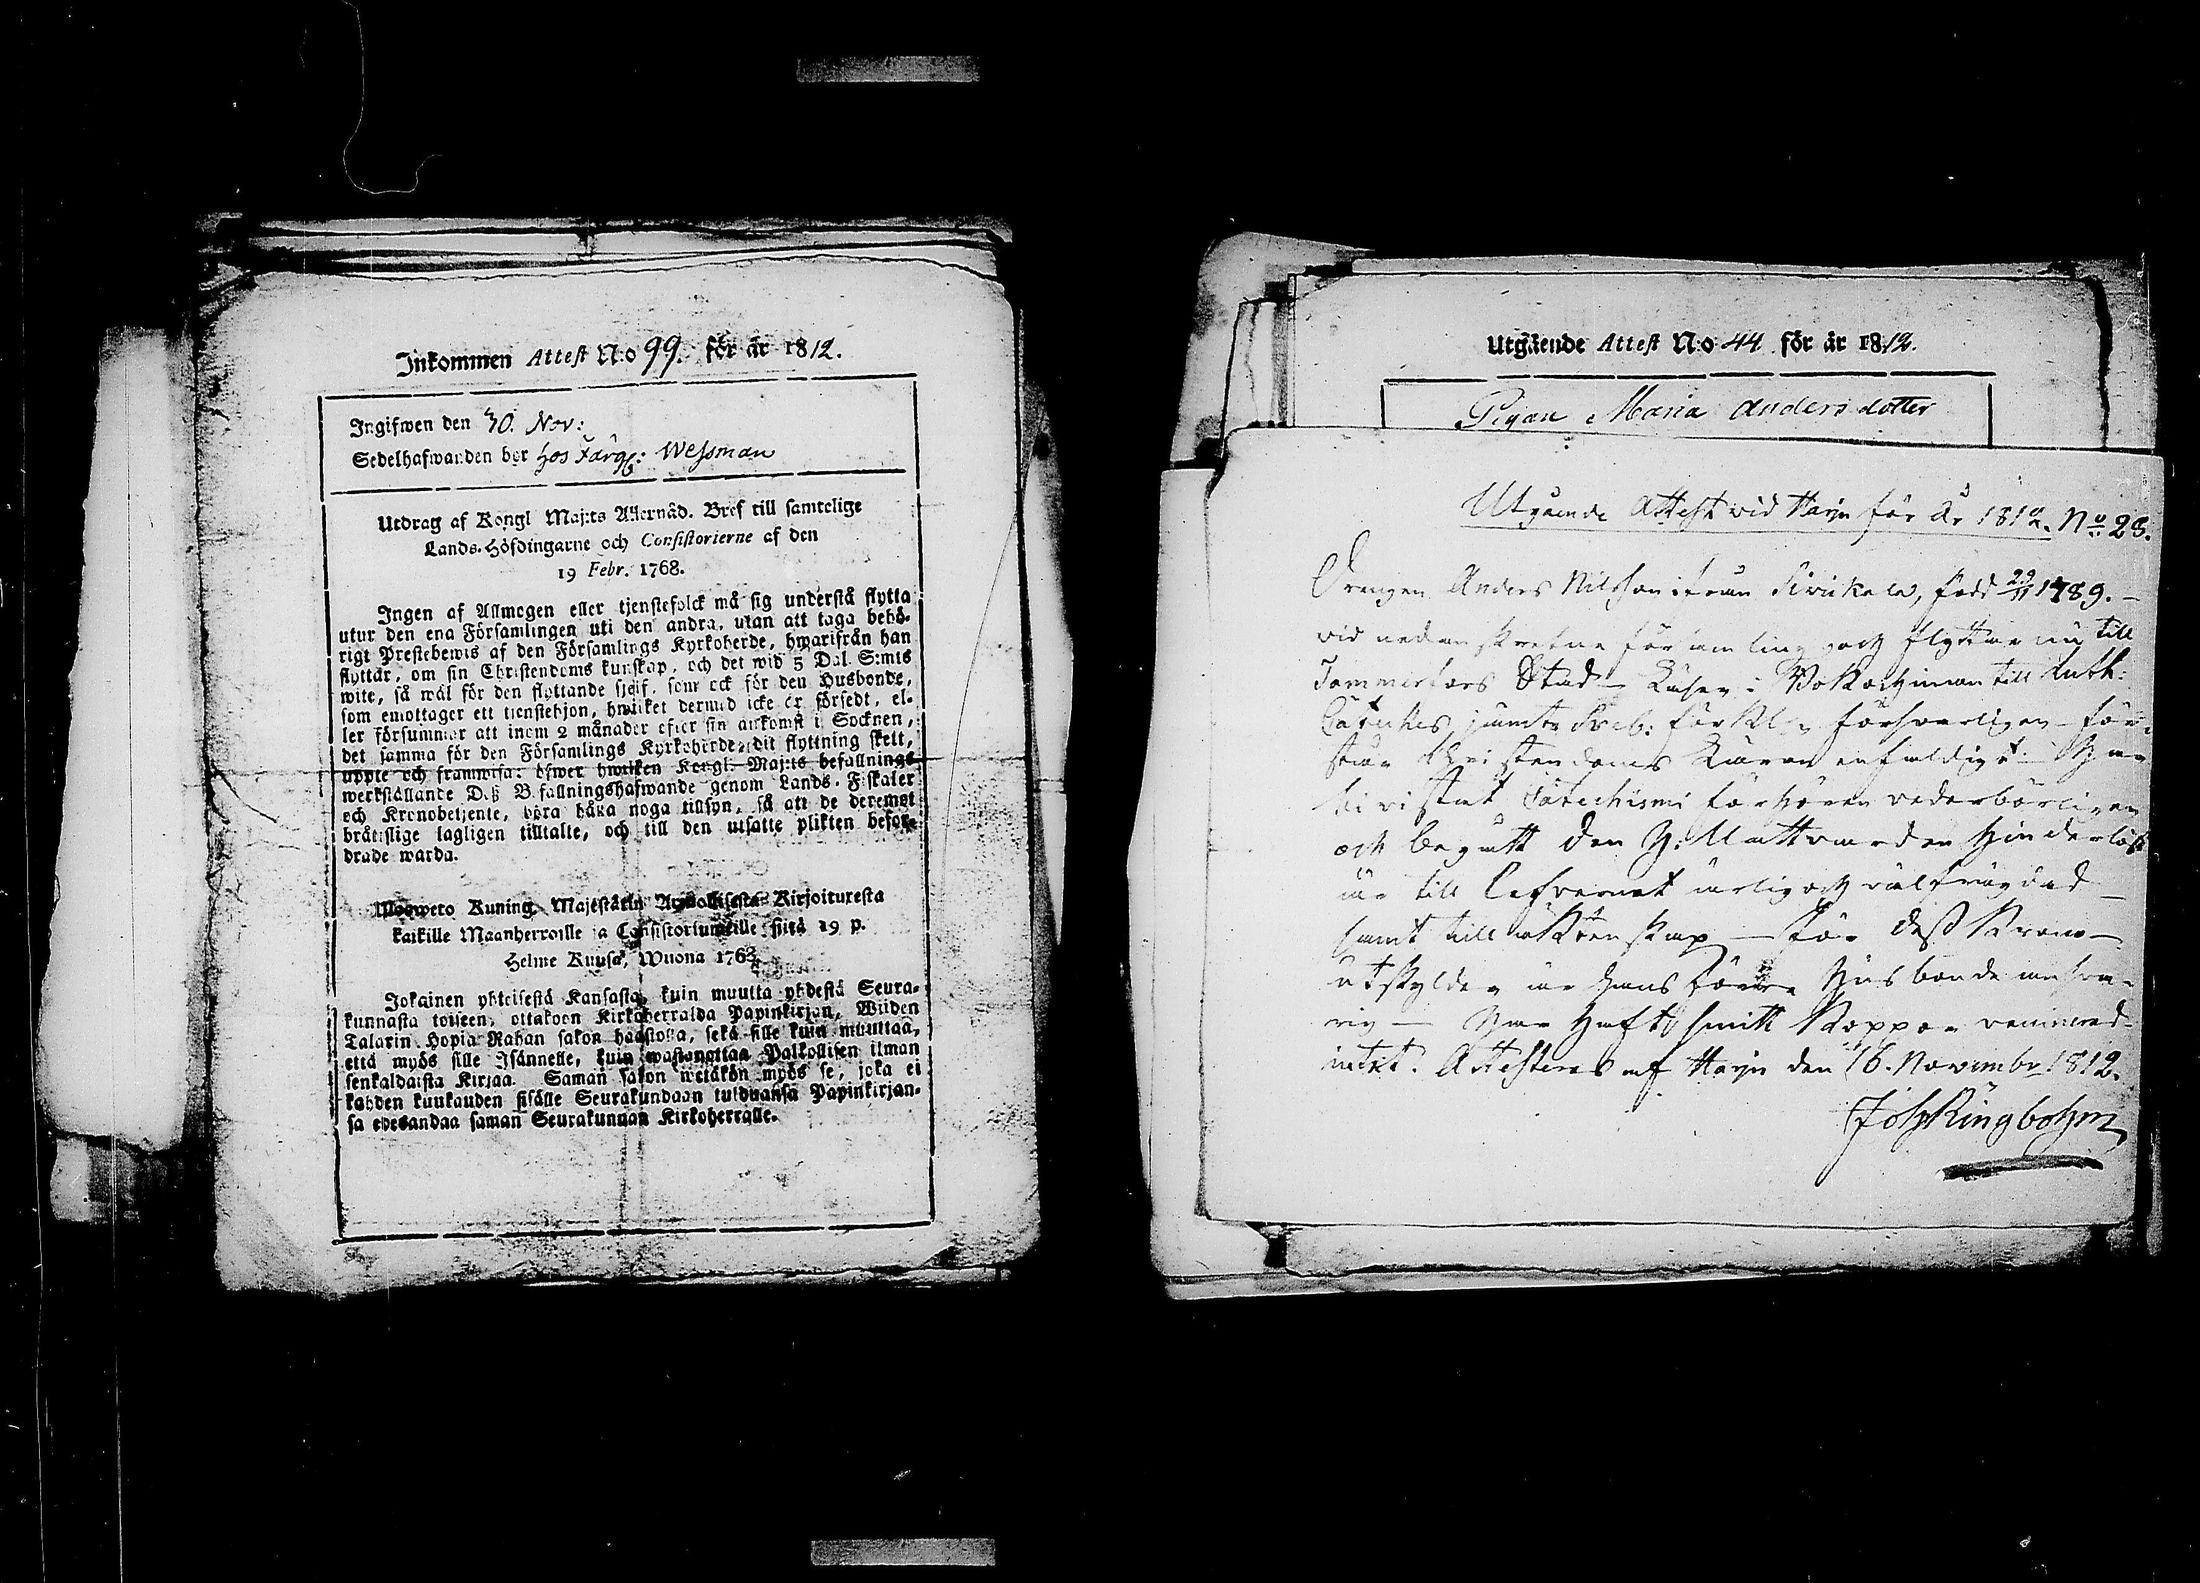 Inkommen Attest N:o 99. för år 1812.
Ingifwen den 30. Nov:
Sedelhafwanden bor hos Färg: Wessman
Utdrag af Kongl Maj:ts Allernåd. Bref till samtelige
Lands-Höfdingarne och Consistorierne af den
19 Febr. 1768.
Ingen af Allmogen eller tjenstefolck må sig understå flytta
utur den ena Församlingen uti den andra, utan att taga behö-
rigt Prestebewis af den Församlings Kyrkoherde, hwarifrån han
flyttar, om sin Christendoms kunskap, och det wid 5 Dal. S:mts
wite, så wäl för den flyttande sjelf, som ock för den Husbonde,
som emottager ett tjenstehjon, hwilket dermed icke är försedt, el-
ler försummar att inom 2 månader efter sin ankomst i Socknen,
det samma för den Församlings Kyrkoherde, dit flyttning skett,
uppte och framwisa: öfwer hwilken Kongl. Maj:ts befallning
werkställande Deß Befallningshafwande genom Lands-Fiskaler
och Kronobetjente, böra hålla noga tillsyn, så att de deremot
bråtislige lagligen tilltalte, och till den utsatte plikten befor-
drade warda.
Kuning. Majestätin Armollisesta Kirjoituxesta
kaikille Maanherroille ja Consistoriumeille siitä 19 p.
Helme Kuusa, Wuona 1768.
Jokainen yhteisestä Kansasta, kuin muutta yhdestä Seura-
kunnasta toiseen, ottakoon Kirkoherralda Papinkirjan, Wiiden
Talarin Hopia Rahan sakon haastolla, sekä sille kuin muuttaa,
että myös sille Isännelle, kuin wastanottaa Palkollisen ilman
senkaldaista Kirjaa. Saman sakon wetäkön myös se, joka ei
kahden kuukauden sisälle Seurakundaan tulduansa Papinkirjan-
sa edesandaa saman Seurakunnan Kirkoherralle.
Utgäende Attest N:o 44 för år 1812.
Pigan Maria Anders dotter
Utgående Attest vid Harju för År 1812. No 28.
Drengen Anders Nilsson ifrån Siwikala, född 29/11 1789. –
vid nedanskrefne församling och flyttar nu till
Tammerfors Stad – Läser i Bok och innan till Luth:
Cateches jämte Sveb: förkl: försvarligen – för-
står Christendoms Läran enfaldigt. Har
bivistat Catechismi förhören vederbörligen
och begått den H: Nattvarden hinderlös
är till lefvernet ärlig och välfrägdad –
samt till äktenskap – För dess Krono-
utskylder är hans förre Husbonde ansva-
rig – Har haft smitt Koppor vaccinerad
intet. Attesteras af Harju den 16. November 1812.
Joh Ringbohm